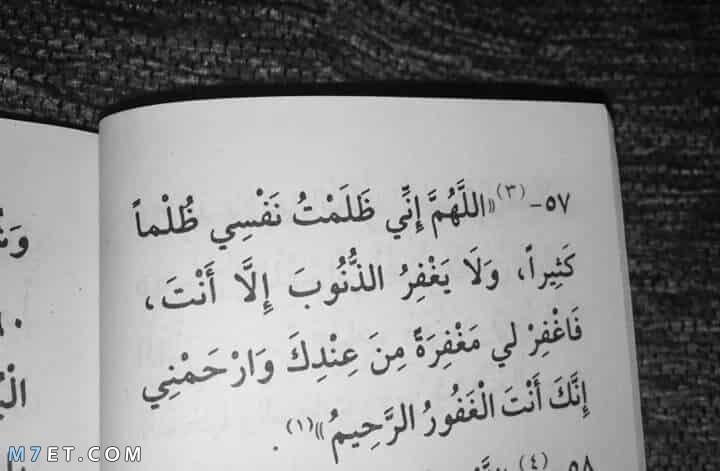 ٥٧- (٣) «اللَّهُمَّ إِنِّي ظَلَمْتُ نَفْسِي ظُلْماً
كَثِيراً، وَلَا يَغْفِرُ الذُّنُوبَ إِلَّا أَنْتَ،
فَاغْفِرْ لِي مَغْفِرَةً مِنَ عِنْدِكَ وَارْحَمْنِي
إِنَّكَ أَنْتَ الْغَفُورُ الرَّحِيمُ»(١).
٥٨ (٤)
M7ET.COM